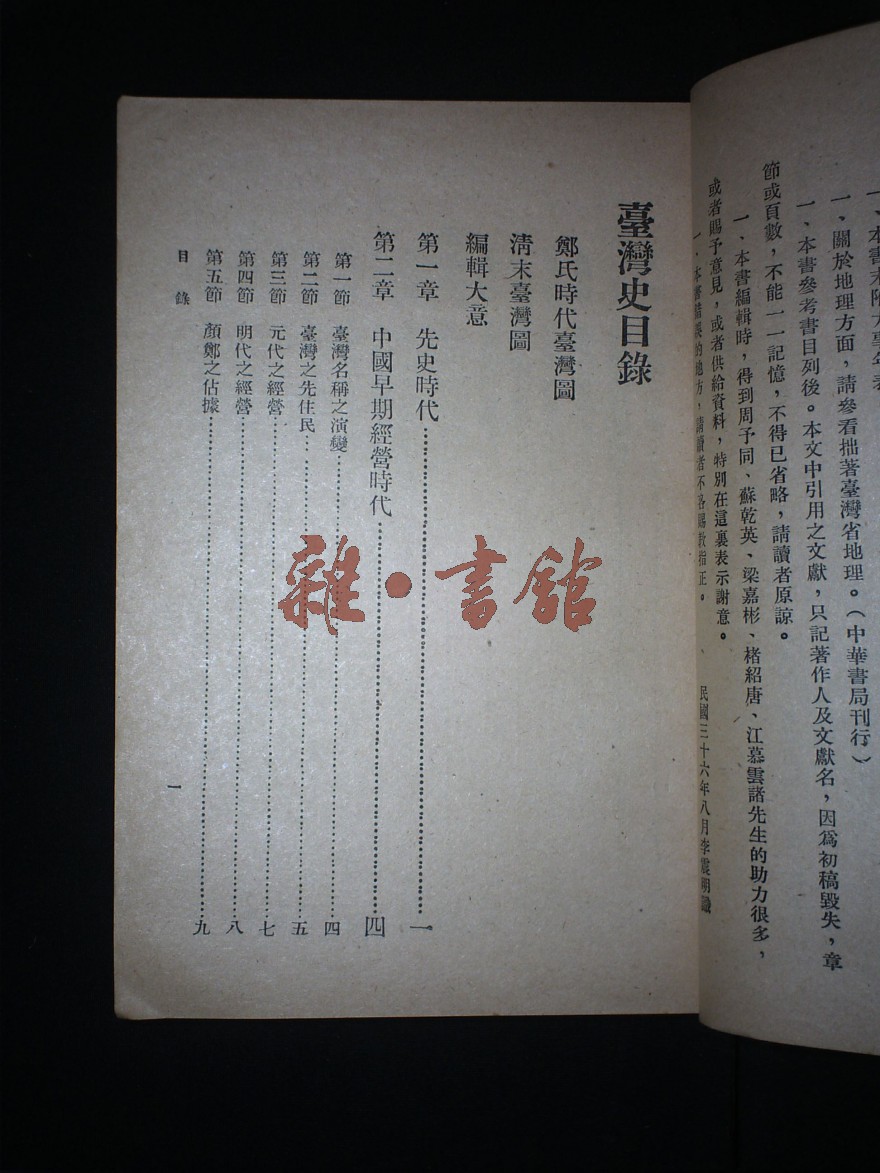 一、本書末附大事年表
一、關於地理方面，請參看拙著臺灣省地理。（中華書局刊行）
一、本書參考書目列後。本文中引用之文獻，只記著作人及文獻名，因爲初稿毀失，章
節或頁數，不能一一記憶，不得已省略，請讀者原諒。
一、本書編輯時，得到周予同、蘇乾英、梁嘉彬、楮紹唐、江慕雲諸先生的助力很多，
或者賜予意見，或者供給資料，特別在這裏表示謝意。
一、本書錯誤的地方，請讀者不吝賜敎指正。
民國三十六年八月李震明識
臺灣史目錄
鄭氏時代臺灣圖
淸末臺灣圖
編輯大意
第一章 先史時代 一
第二章 中國早期經營時代 四
第一節 臺灣名稱之演變 四
第二節 臺灣之先住民 五
第三節 元代之經營 七
第四節 明代之經營 八
第五節 顏鄭之佔據 九
目錄
一
雜·書館